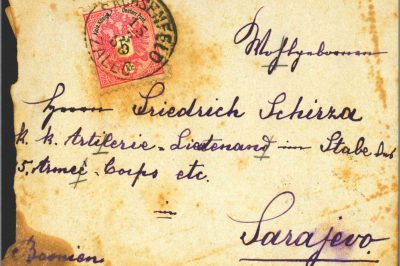 Wohlgeboren
Herrn Friedrich Schirza
k. k. Artillerie-Lieutenant im Stabe des
5. Armee-Corps etc.
in
Sarajevo.
Bosnien